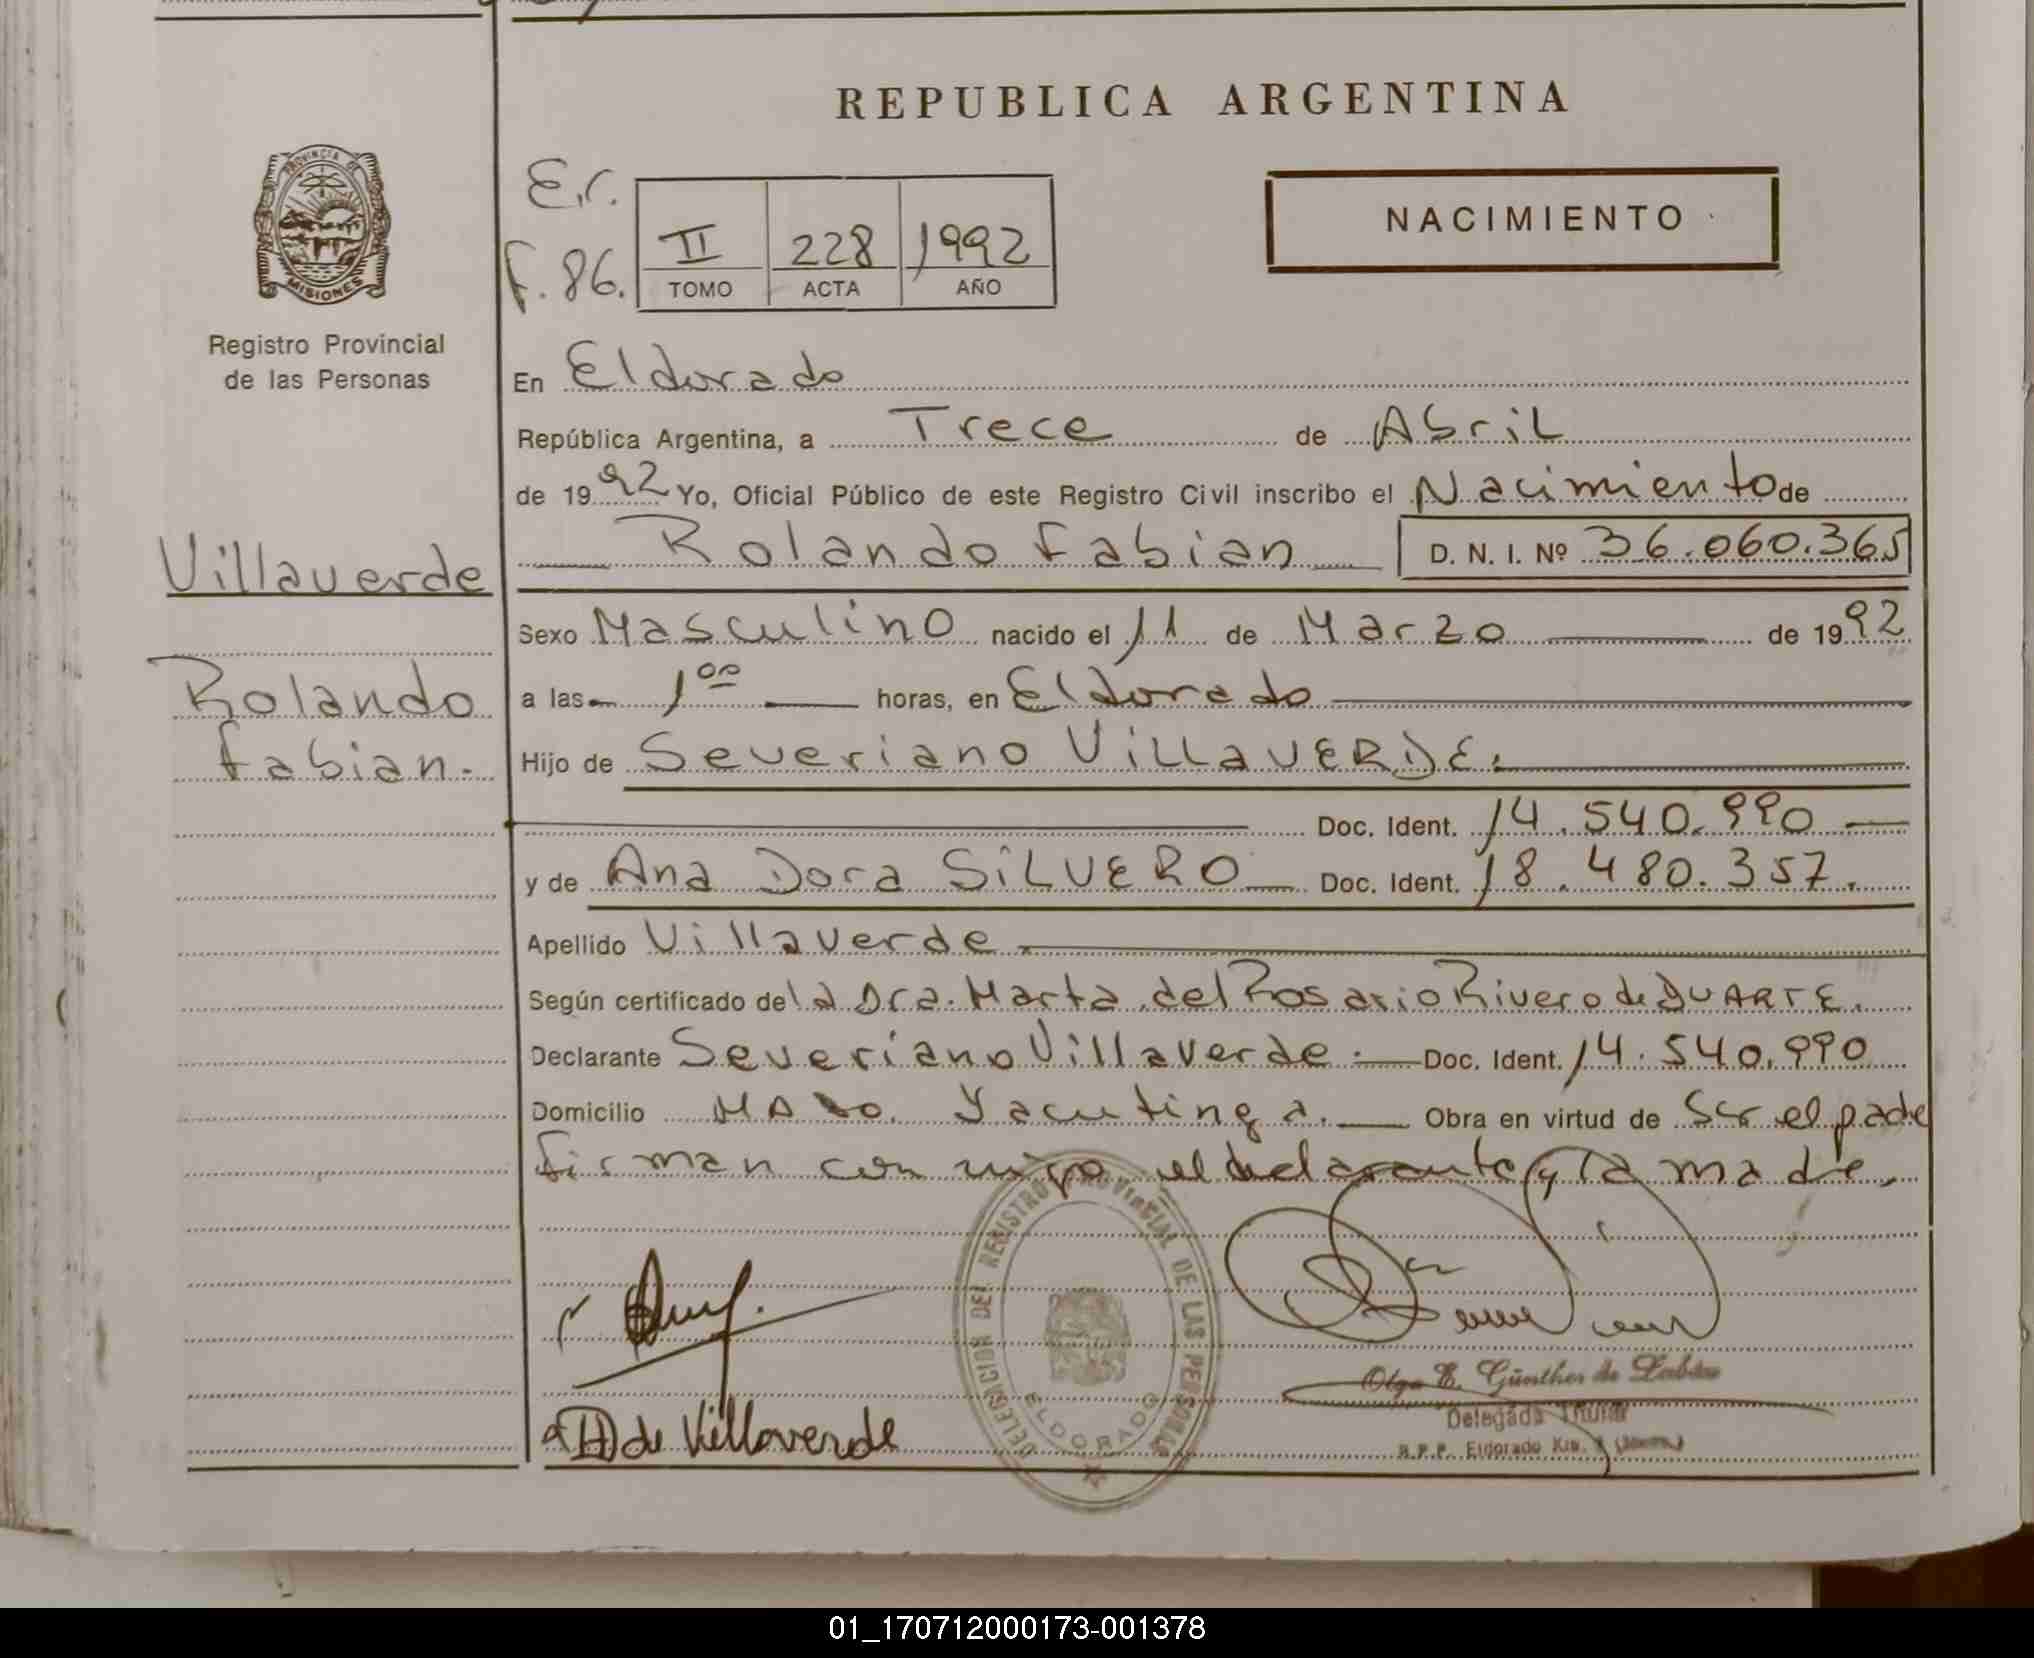 REPUBLICA ARGENTINA
PROVINCIA DE
MISIONES
Registro Provincial
de las Personas
Er.
F. 86.
II 228 1992
TOMO ACTA AÑO
NACIMIENTO
En Eldorado
República Argentina, a Trece de Abril
de 1992 Yo, Oficial Público de este Registro Civil inscribo el Nacimiento de
Rolando Fabian D. N. I. Nº 36.060.365
Villaverde
Sexo Masculino nacido el 11 de Marzo de 1992
Rolando
a las 1°° horas, en Eldorado
Fabian.
Hijo de Severiano VILLAVERDE.
Doc. Ident. 14.540.990
y de Ana Dora SILVERO Doc. Ident. 18.480.357.
Apellido Villaverde
Según certificado de la Dra. Marta del Rosario Rivero de DUARTE.
Declarante Severiano Villaverde. Doc. Ident. 14.540.990
Domicilio Yacutinga. Obra en virtud de Ser el padre
firman con migo el declarante y la madre.
DELEGACION DEL REGISTRO PROVINCIAL DE LAS PERSONAS
ELDORADO
de Villaverde
Olga E. Günther de
Delegada Titular
R.P.P. Eldorado Km.
01_170712000173-001378